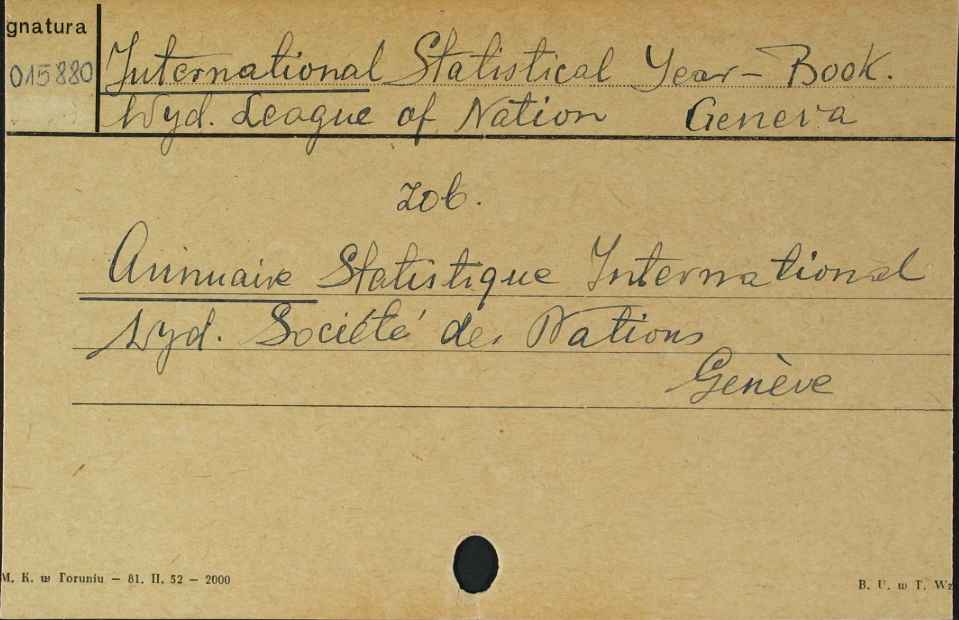 gnatura
015880
International Statistical Year-Book.
Wyd. League of Nation Geneva
zob.
Annuaire Statistique International
Wyd. Société des Nations
Genève
M. K. w Toruniu — 81. II. 52 — 2000
B. U. w T. Wz